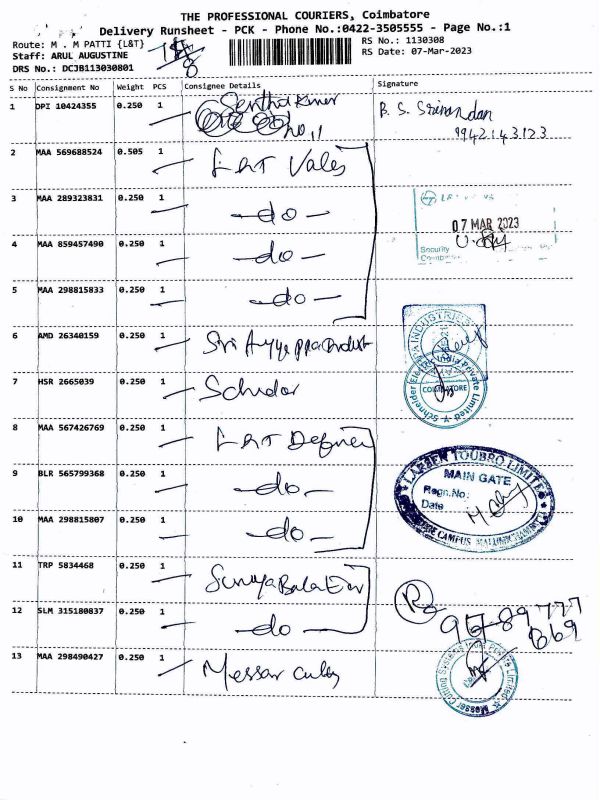 THE PROFESSIONAL COURIERS, Coimbatore
Delivery Runsheet - PCK - Phone No.:0422-3505555 - Page No.:1
Route: M . M PATTI {L&T} RS No.: 1130308
Staff: ARUL AUGUSTINE RS Date: 07-Mar-2023
DRS No.: DCJB113030801 8
S No Consignment No Weight PCS Consignee Details Signature
1 DPI 10424355 0.250 1 B. S.
2 MAA 569688524 0.505 1 L&T Valves
3 MAA 289323831 0.250 1 -do-
07 MAR 2023
4 MAA 859457490 0.250 1 -do-
Security
5 MAA 298815833 0.250 1 -do-
6 AMD 26340159 0.250 1 Sri Ayyappa
7 HSR 2665039 0.250 1
Schneider Electric India Private Limited
COIMBATORE
8 MAA 567426769 0.250 1 L&T
LARSEN & TOUBRO LIMITED
MAIN GATE
9 BLR 565799368 0.250 1 -do-
Regn.No:
Date
10 MAA 298815807 0.250 1 -do-
CAMPUS
11 TRP 5834468 0.250 1
12 SLM 315180837 0.250 1 -do-
13 MAA 298490427 0.250 1 Messer
Messer Cutting Systems India Private Limited